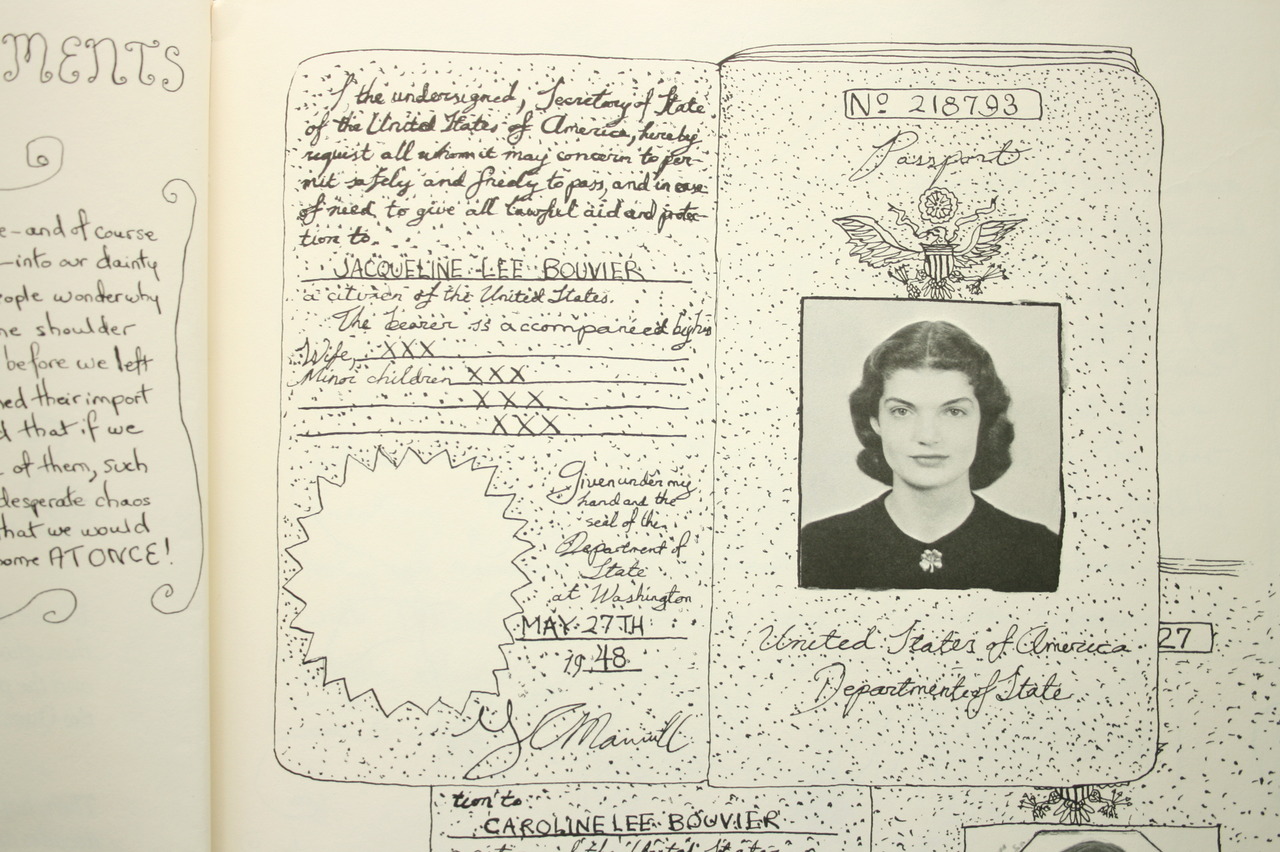 MENTS
e-and of course
-into our dainty
ople wonder why
ne shoulder
before we left
ned their import
d that if we
of them, such
desperate chaos
that we would
home AT ONCE!
I the undersigned, Secretary of State
of the United States of America, hereby
request all whom it may concern to per-
mit safely and freely to pass, and in case
of need, to give all lawful aid and protec-
tion to
JACQUELINE LEE BOUVIER
a citizen of the United States.
The bearer is accompanied by his
Wife, XXX
Minor children XXX
XXX
XXX
Given under my
hand and the
seal of the
Department of
State
at Washington
MAY 27TH
19 48
No 218793
Passport
United States of America
Department of State
27
tion to
CAROLINE LEE BOUVIER
of the United States